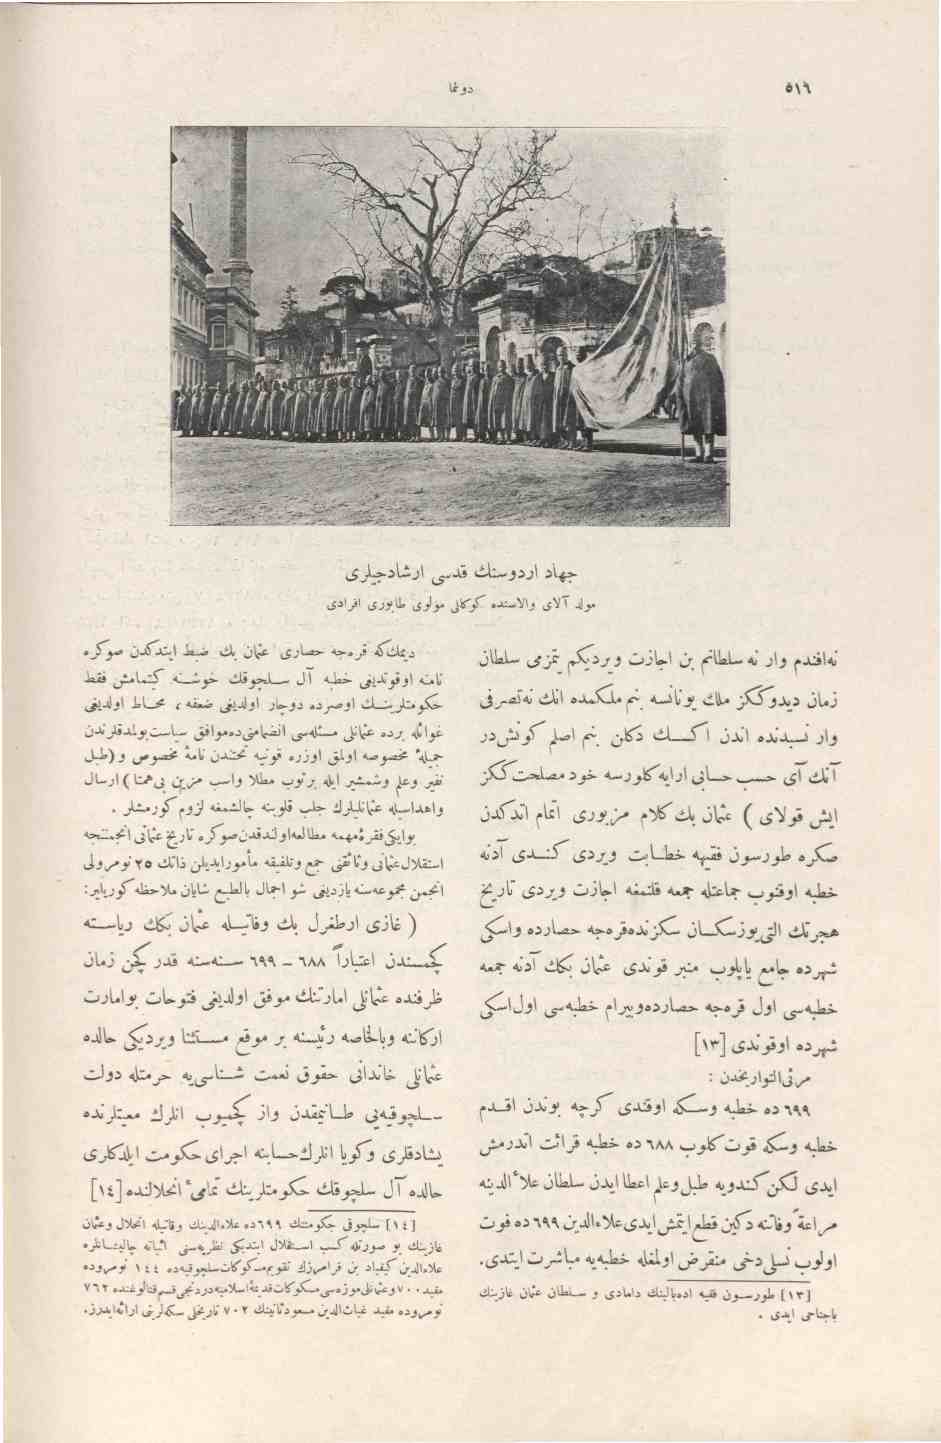 ٥١٦
دونما
جهاد اردوسنك قدسی ارشادجیلری
مولد آلای والاسنده كوكللی مولوی طابوری افرادی
نه‌افندم وار نه سلطانم بن اجازت ویردیكم یتمزمی سلطان
زمان دیدوككز ملك یونانسه بنم ملكمده انك نه‌تصرفی
وار نسبدنده اندن اكسك دكلن بنم اصلم كونش‌در
آنك آی حسب حسابی ارایه‌كلورسه خود مصلحتكز
ایش قولای ) عثمان بك كلام مزبوری اتمام اتدكدن
صكره طورسون فقیهه خطابت ویردی كندی آدنه
خطبه اوقنوب جماعتله جمعه قلنمغه اجازت ویردی تاریخ
هجرتك التی‌یوزسكسان سكزنده‌قره‌جه حصارده واسكی
شهرده جامع یاپلوب منبر قوندی عثمان بكك آدنه جمعه
خطبه‌سی اول قره‌جه حصارده‌وبیرام خطبه‌سی اول‌اسكی
شهرده اوقوندی [١٣]
مرئی‌التواریخدن :
٦٩٩ ده خطبه وسكه اوقندی كرچه بوندن اقدم
خطبه وسكه قوت كلوب ٦٨٨ ده خطبه قرائت اندرمش
ایدی لكن كندویه طبل‌وعلم اعطا ایدن سلطان علاءالدینه
مراعةً وفاتنه دكین قطع‌ایتمش‌ایدی‌علاءالدین ٦٩٩ ده فوت
اولوب نسلی دخی منقرض اولمغله خطبه‌یه مباشرت ایتدی.
[١٣] طورسون فقیه اده‌بالینك دامادی و سلطان عثمان غازینك
باجناحی ایدی .
دیمك‌كه قره‌جه حصاری عثمان بك ضبط ایتدكدن صوكره
نامنه اوقوندیغی خطبه آل سلجوقك خوشنه كیتمامش فقط
حكومتلرینك اوصره‌ده دوچار اولدیغی ضعفه ، محاط اولدیغی
غوائله برده عثمانلی مسئله‌سی انضمامی‌ده‌موافق سیاست‌بولمدقلرندن
جمیلهٔ مخصوصه اولمق اوزره قونیه تختندن نامهٔ مخصوص و (طبل
نفیر وعلم وشمشیر ایله برتوب مطلا واسب مزین بی‌همتا ) ارسال
واهداسیله عثمانلیلرك جلب قلوبنه چالشمغه لزوم كورمشلر .
بوایكی‌فقرهٔ‌مهمه مطالعه‌اولندقدن‌صوكره تاریخ عثمانی انجمننجه
استقلال‌عثمانی وثائقنی جمع وتلفیقه مأمورایدیلن ذاتك ٢٥ نومرولی
انجمن مجموعه‌سنه یازدیغی شو اجمال بالطبع شایان ملاحظه كوریلیر:
( غازی ارطغرل بك وفاتیله عثمان بكك ریاسته
كچمسندن اعتباراً ٦٨٨ ــ ٦٩٩ سنه‌سنه قدر كچن زمان
ظرفنده عثمانلی امارتنك موفق اولدیغی فتوحات بوامارت
اركاننه وبالخاصه رئیسنه بر موقع مستثنا ویردیكی حالده
عثمانلی خاندانی حقوق نعمت شناسی‌یه حرمتله دولت
سلجوقیه‌یی طانیمقدن واز كچمیوب انلرك معیتلرنده
یشادقلری وكویا انلرك‌حسابنه اجرای حكومت ایلدكلری
حالده آل سلجوقك حكومتلرینك تمامیء انحلالنده[١٤]
[١٤] سلجوقی حكومتنك ٦٩٩ده علاءالدینك وفاتیله انحلال وعثمان
غازینك بو صورتله كسب استقلال ایتدیكی نظریه‌سنی اثباته چالیشانلره
علاءالدین كیقباد بن فرامرزك تقویم‌مسكوكات‌سلجوقیه‌ده ١٤٤ نومروده
مقید ٧٠٠ وعثمانلی‌موزه‌سی‌مسكوكات‌قدیمهٔ‌اسلامیه‌دردنجی‌قسم‌قتالوغنده ٧٦٢
نومروده مقید غیاث‌الدین مسعودثانینك ٧٠٢ تاریخلی سكه‌لرینی ارائه‌ایدرز.